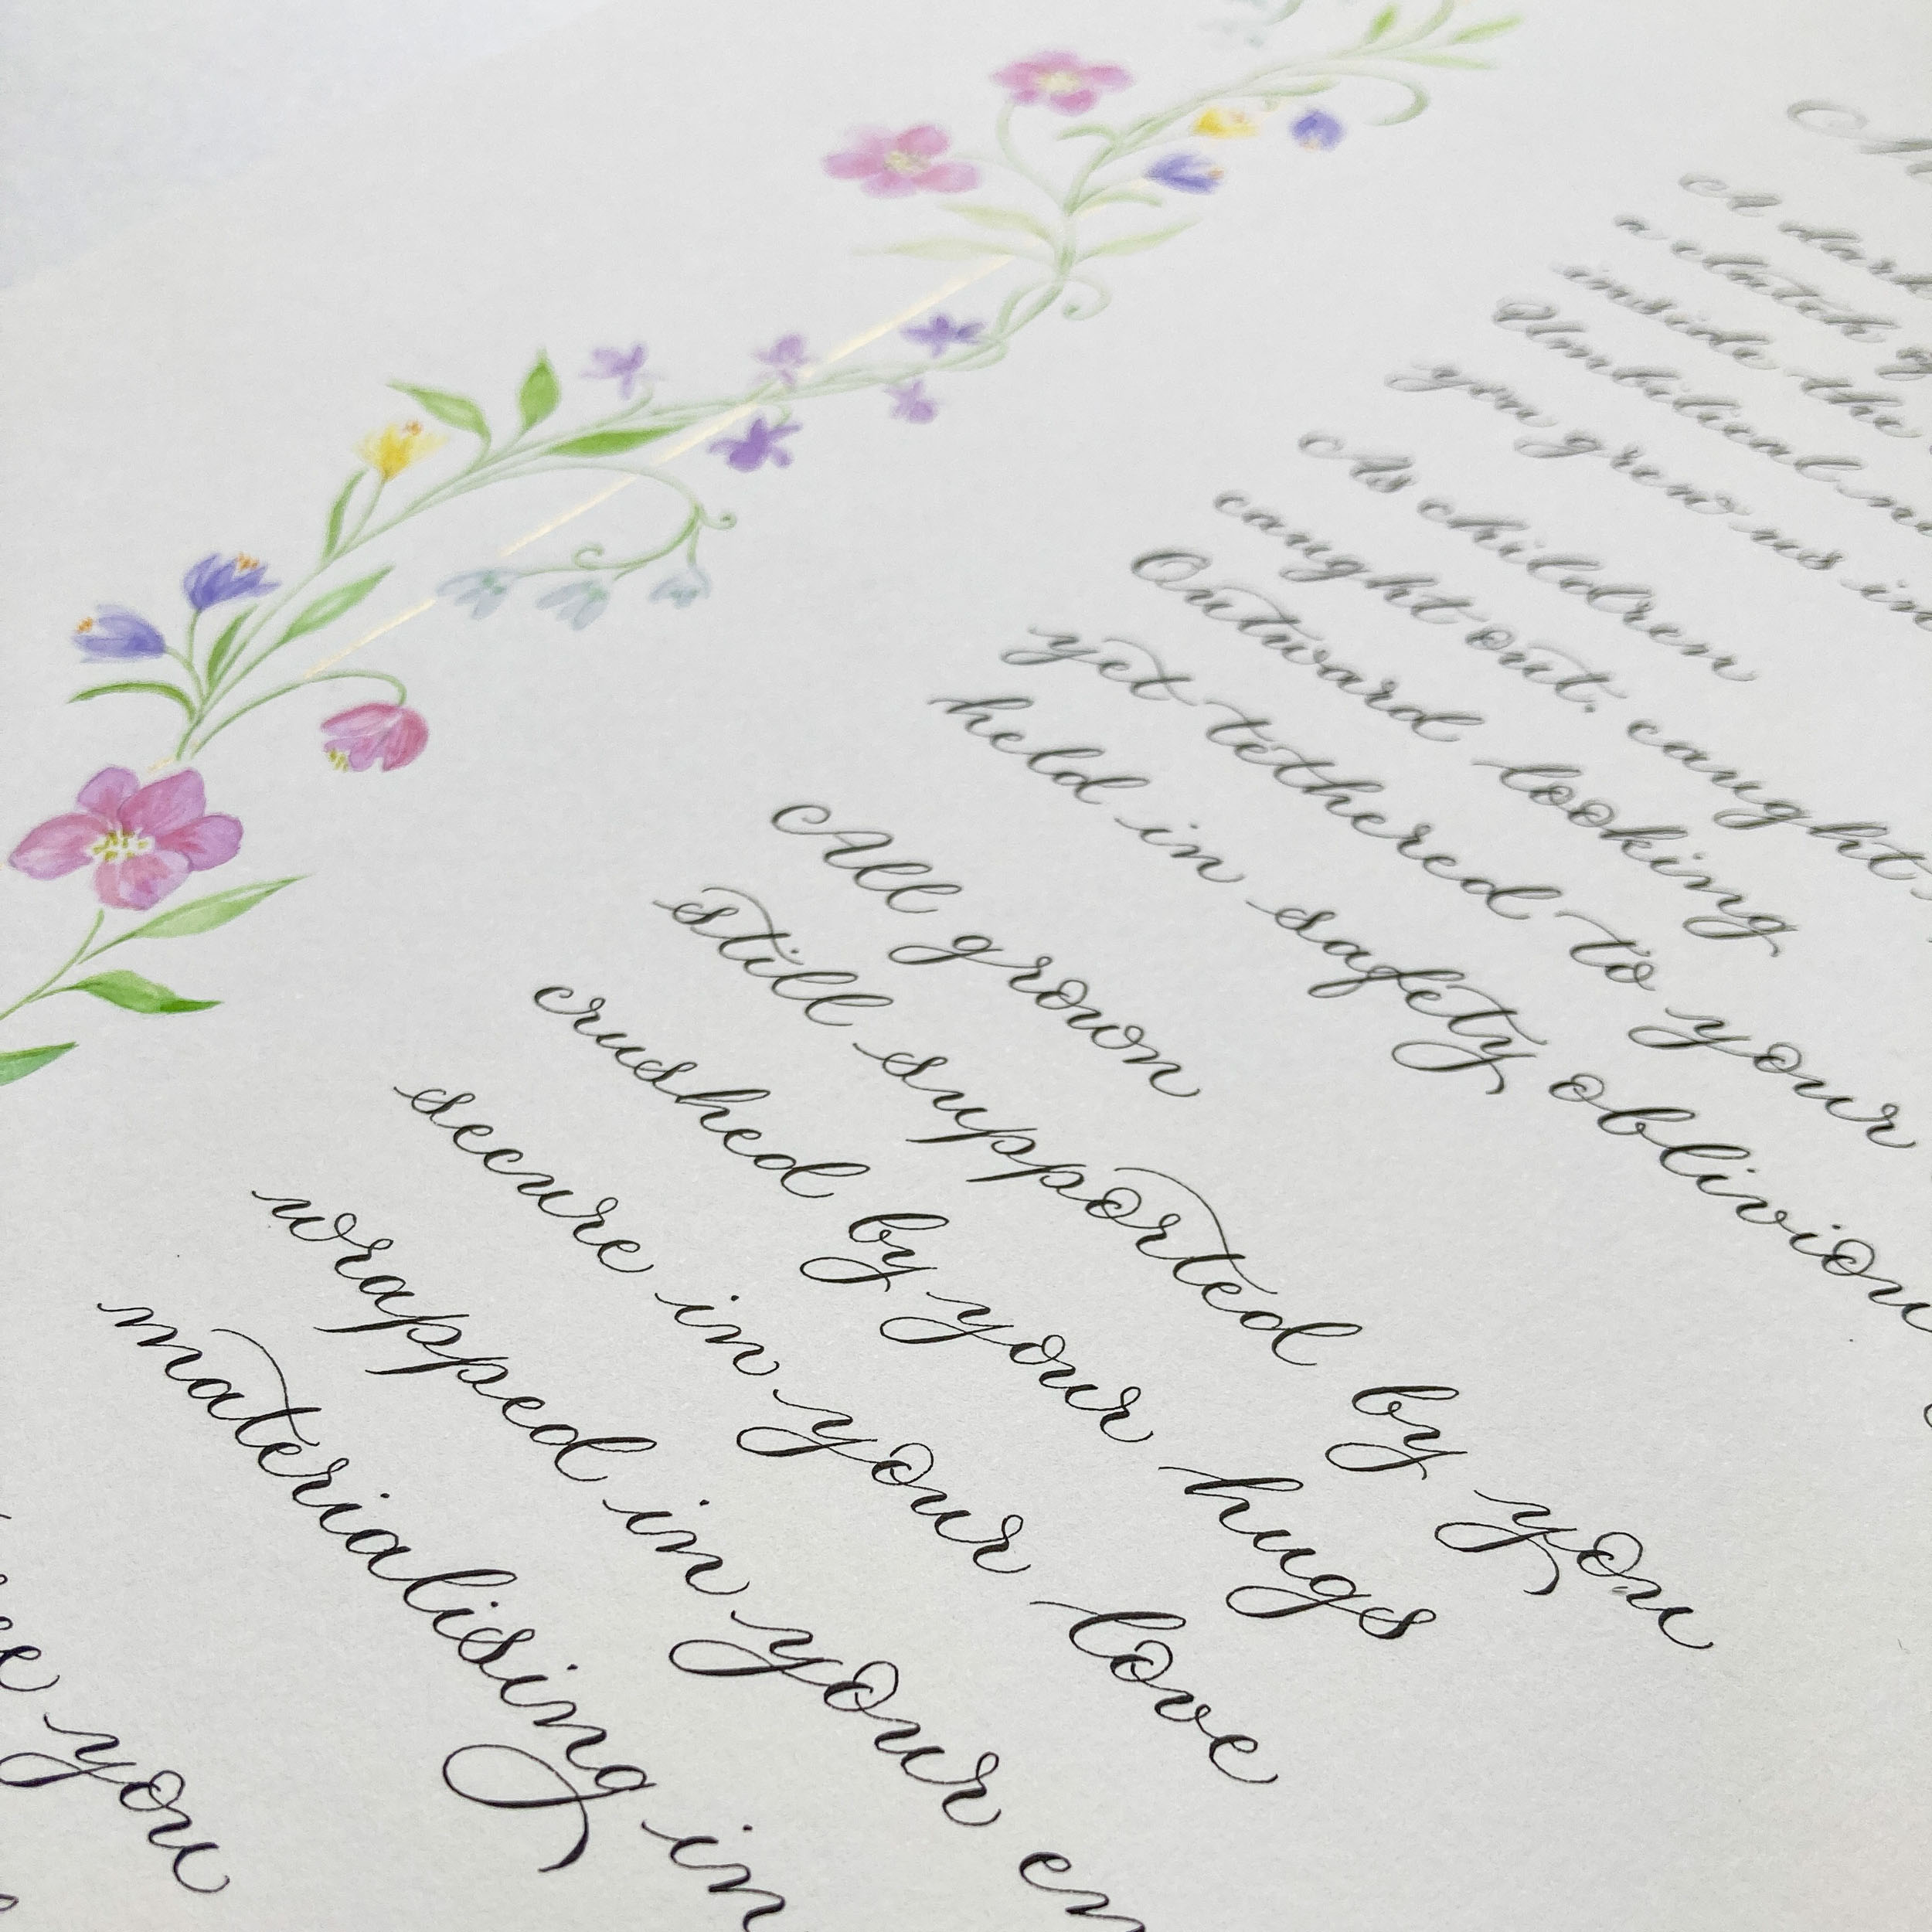 A dark
a clutch of
inside the
Umbilical
you grew us in
As children
caught out, caught
Outward looking
yet tethered to your
held in safety
All grown
still supported by you
crushed by your hugs
secure in your love
wrapped in your
materialising in
you